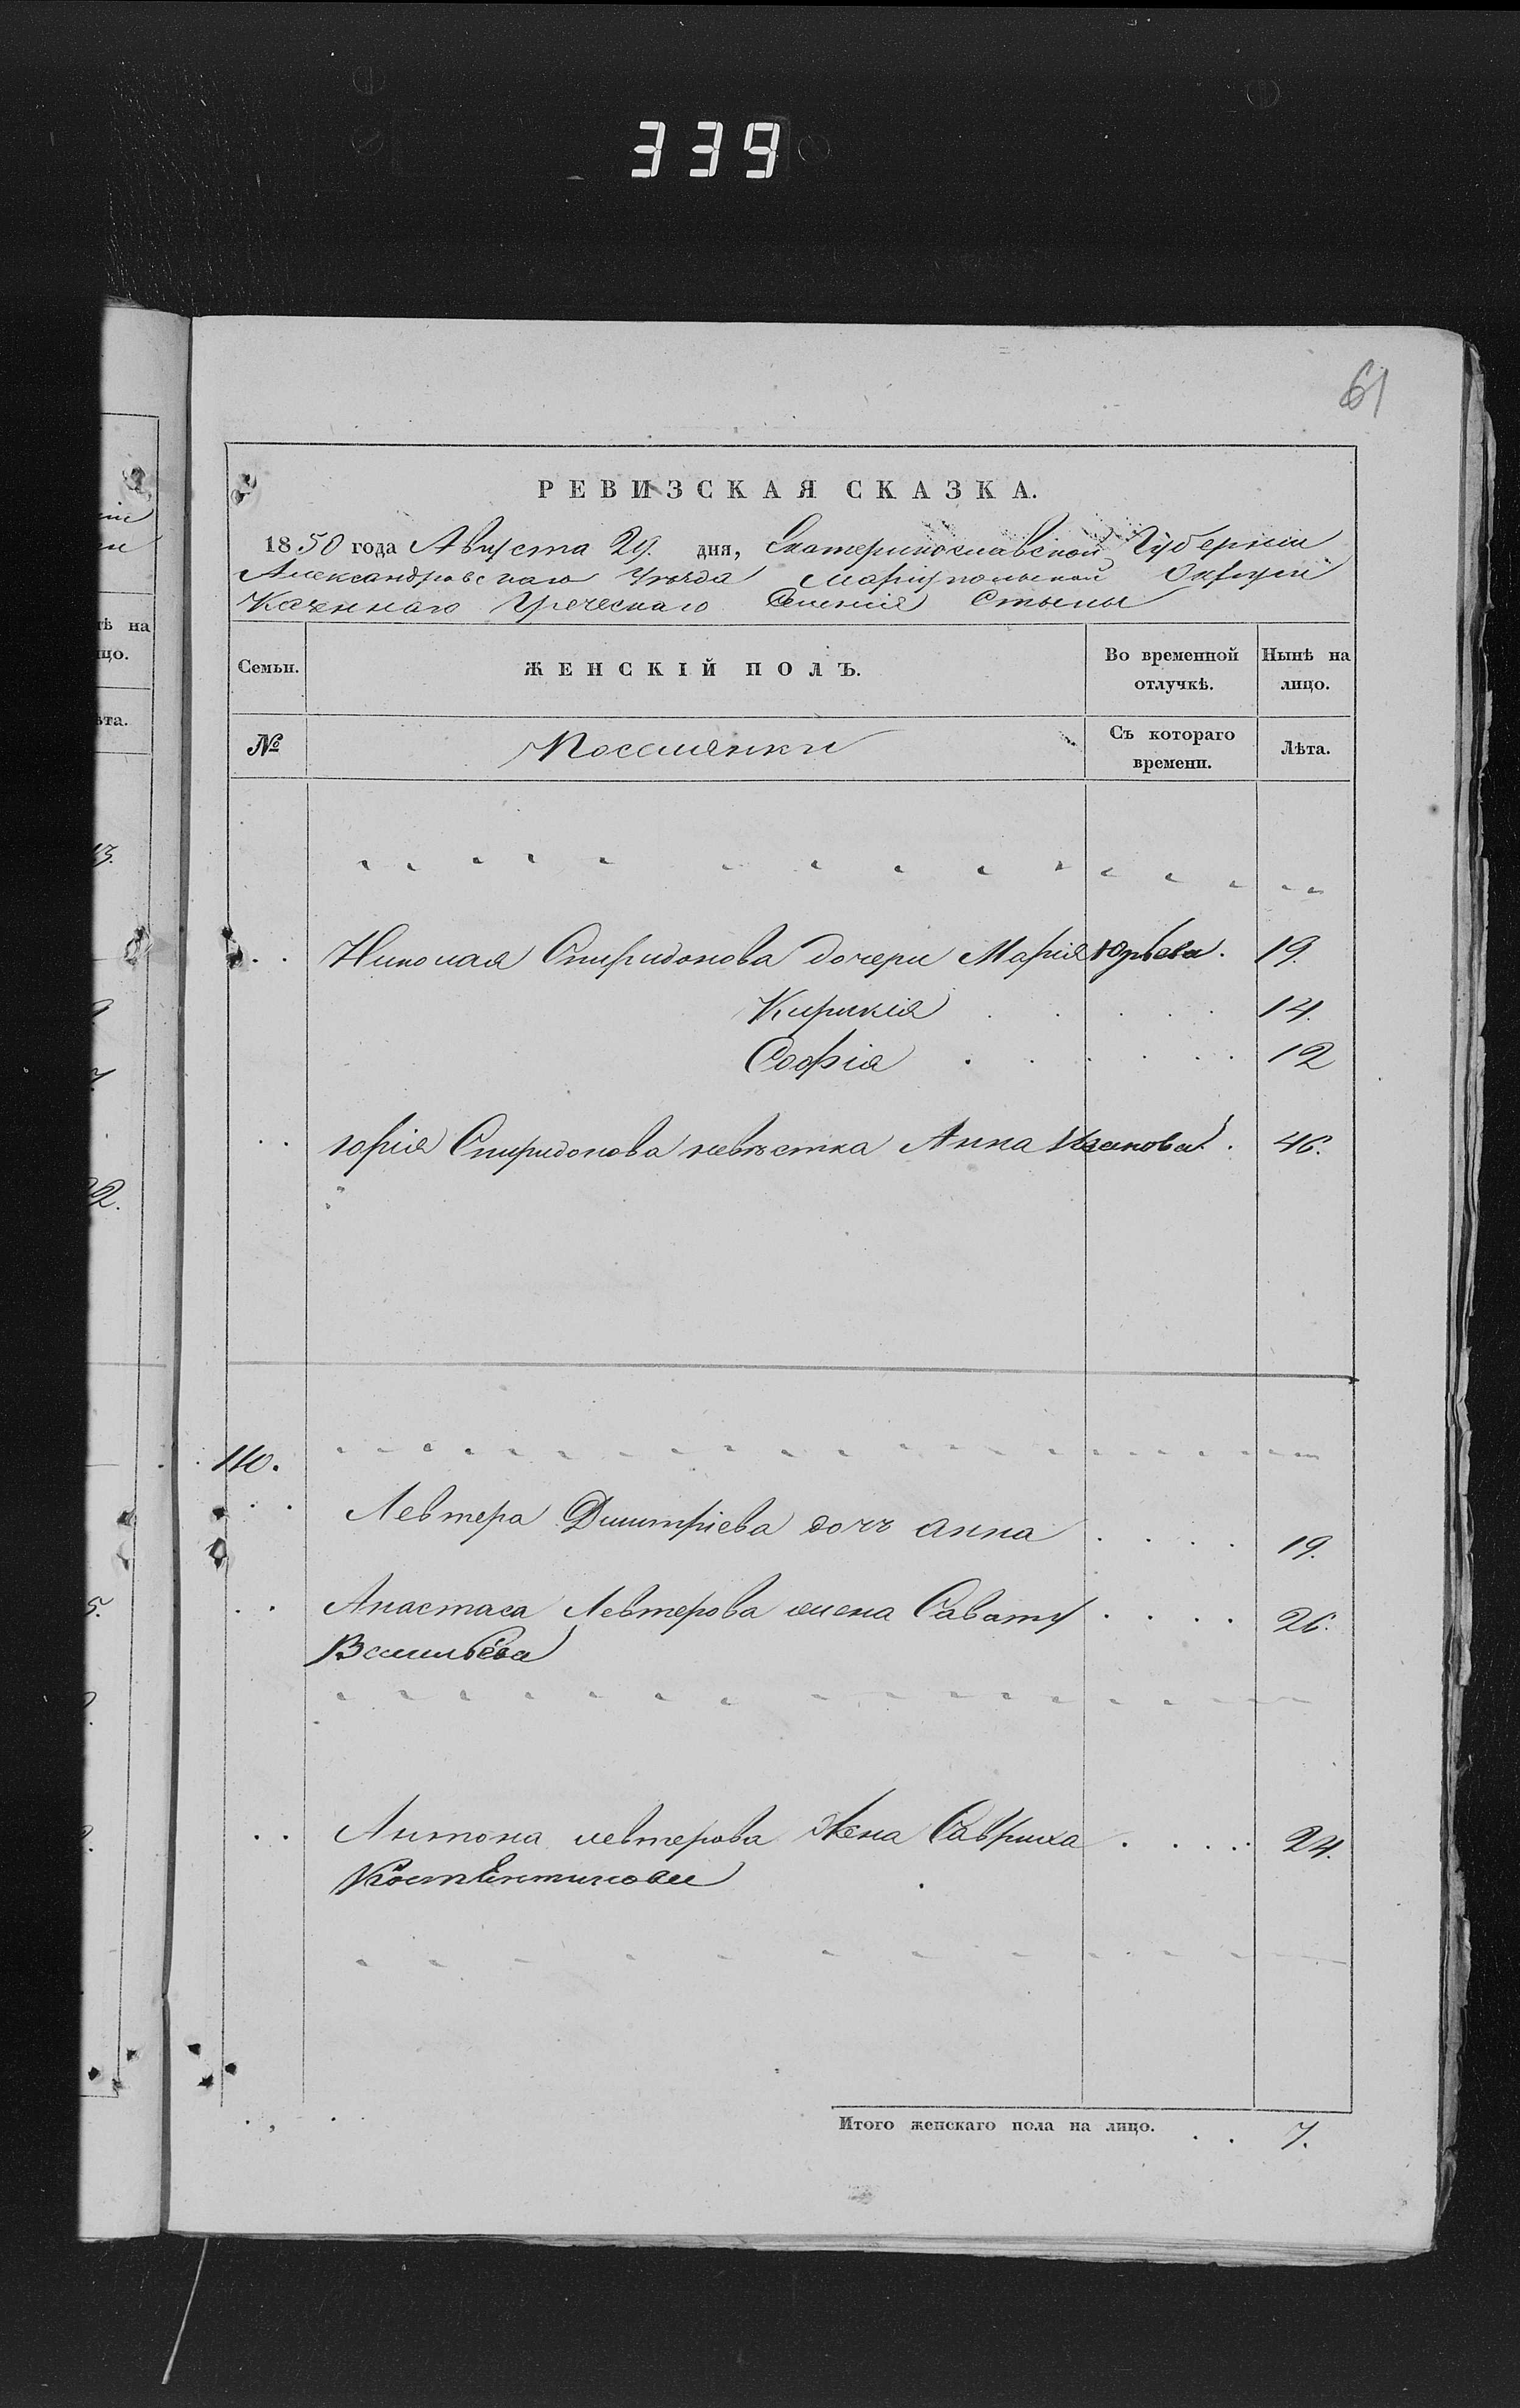 339
61
РЕВИЗСКАЯ СКАЗКА.
1850 года Августа 29. дня, Екатеринославской Губерніи
Александровскаго Уѣзда Маріупольской Округи
Казеннаго Греческаго Селенія Стылы
Семьи.
ЖЕНСКІЙ ПОЛЪ.
Во временной отлучкѣ.
Нынѣ на лицо.
№
Поселянки
Съ котораго времени.
Лѣта.
Николая Спиридонова дочери Марія Юрьева. 19.
Кирикія 14.
Софія 12
Юрія Спиридонова невѣстка Анна 46.
110.
Левтера Дмитріева дочь Анна 19.
Анастаса Левтерова жена Савату 26.
Васильева
Антона Левтерова жена 24.
Итого женскаго пола на лицо. 7.